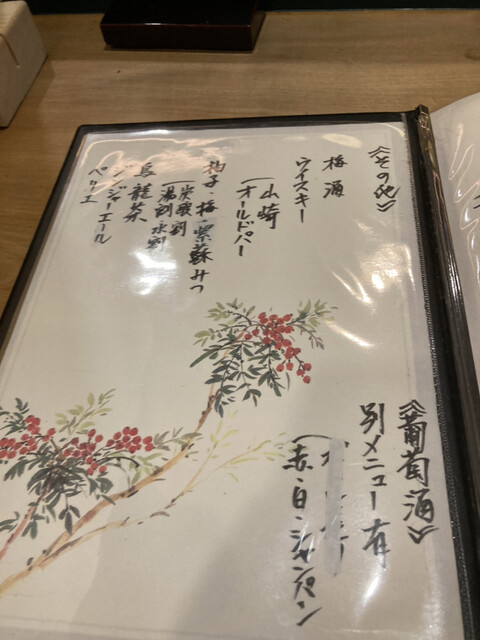 《その他》
梅酒
ウイスキー
(山崎
オールドパー
柚子・梅・紫蘇みつ
(炭酸割
湯割 水割
烏龍茶
ジンジャーエール
ペリエ
《葡萄酒》
別メニュー有
(赤・白・シャンパン